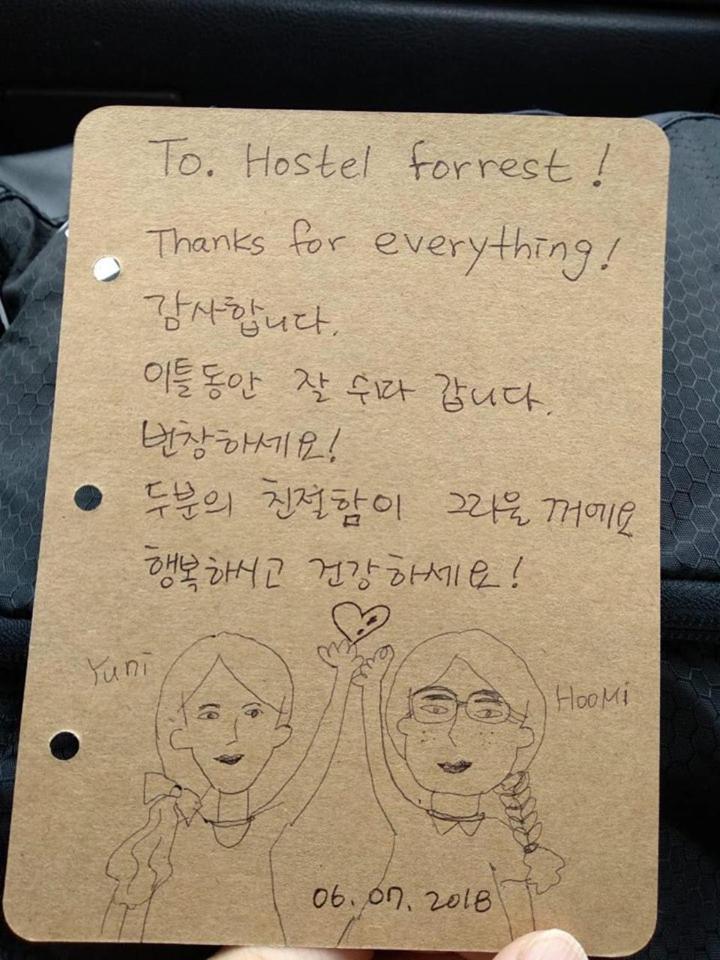 To. Hostel forrest!
Thanks for everything!
감사합니다.
이틀동안 잘 쉬다 갑니다.
번창하세요!
두분의 친절함이 그리울 꺼예요
행복하시고 건강하세요!
Yuni
HooMi
06.07.2018